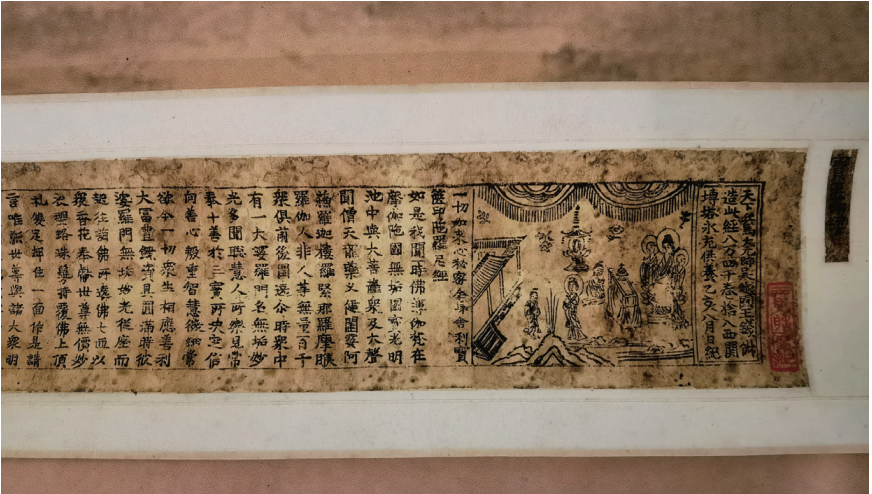 天下兵馬大元帥吳越國王錢俶
造此經八万四千卷捨入西關
塼塔永充供養乙亥八月日紀
一切如來心秘密全身舍利寶
篋印陁羅尼經
如是我聞一時佛薄伽梵在
摩伽陁國無垢園寶光明
池中與大菩薩衆及大聲
聞僧天龍藥叉健闥婆阿
蘇羅迦樓羅緊那羅摩睺
羅伽人非人等無量百千
衆俱前後圍遶尒時衆中
有一大婆羅門名無垢妙
光多聞聰慧人所樂見常
奉十善於三寶所決定信
向善心殷重智慧微細常
欲令一切衆生相應善利
大富豐饒資具圓滿時彼
婆羅門無垢妙光從座而
起往詣佛所遶佛七匝以
衆香花奉獻世尊無價妙
衣瓔珞珠鬘持覆佛上頂
礼雙足却住一面作是請
言唯願世尊與諸大衆明